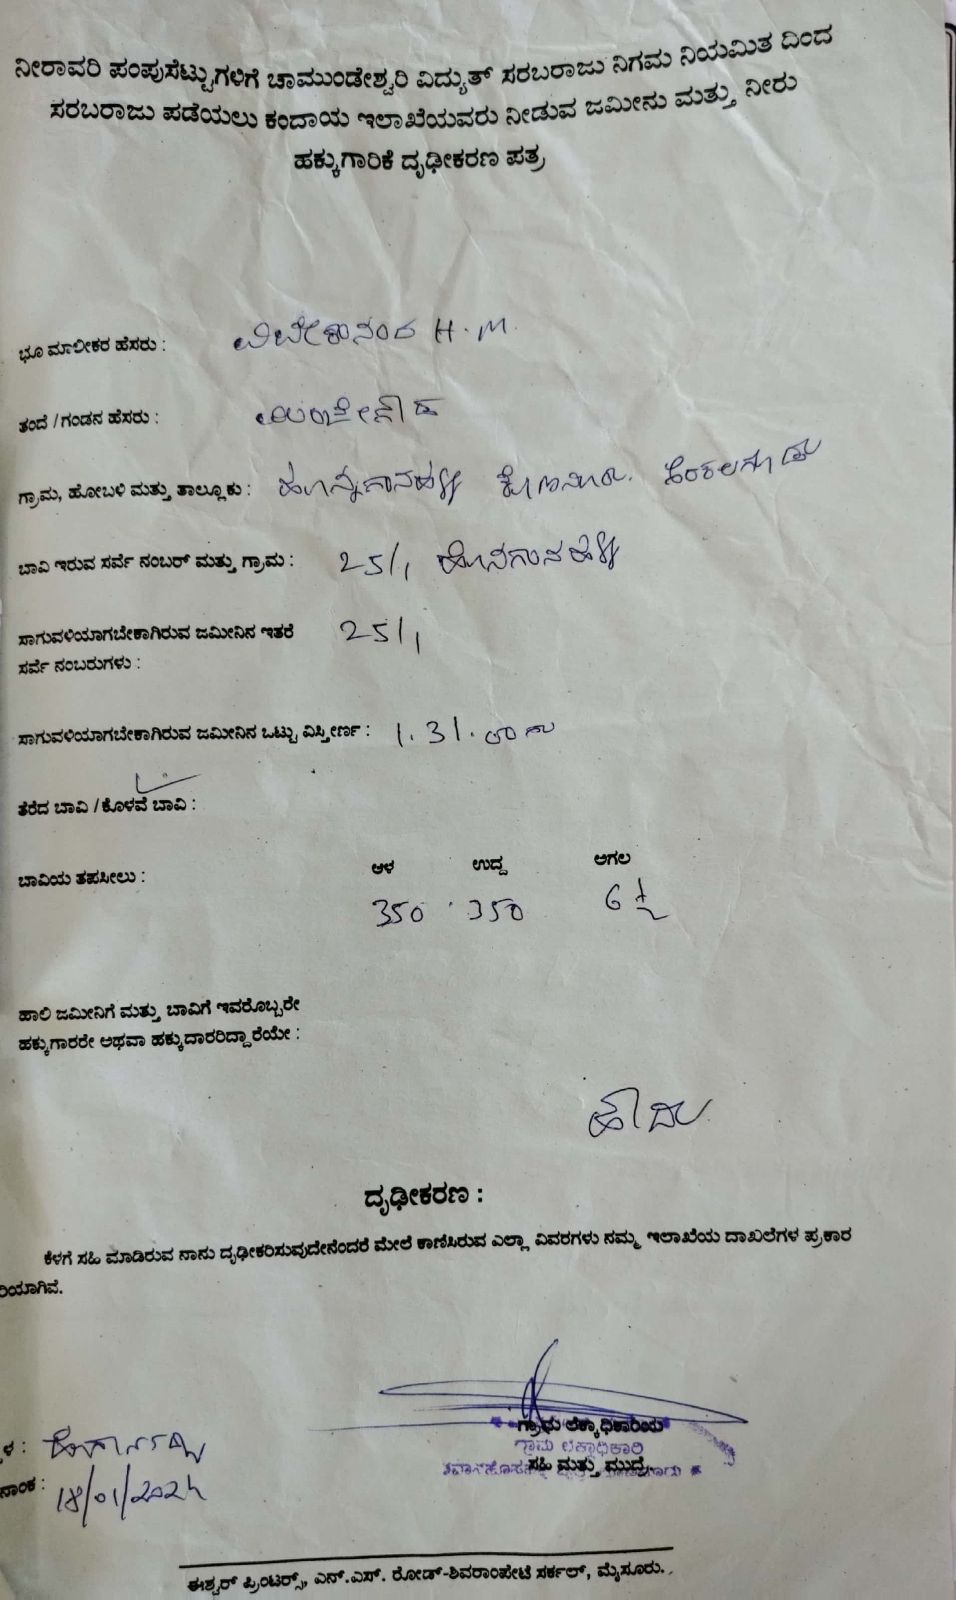 ನೀರಾವರಿ ಪಂಪುಸೆಟ್ಟುಗಳಿಗೆ ಚಾಮುಂಡೇಶ್ವರಿ ವಿದ್ಯುತ್ ಸರಬರಾಜು ನಿಗಮ ನಿಯಮಿತ ದಿಂದ
ಸರಬರಾಜು ಪಡೆಯಲು ಕಂದಾಯ ಇಲಾಖೆಯವರು ನೀಡುವ ಜಮೀನು ಮತ್ತು ನೀರು
ಹಕ್ಕುಗಾರಿಕೆ ದೃಢೀಕರಣ ಪತ್ರ
ಭೂ ಮಾಲೀಕರ ಹೆಸರು : ವಿವೇಕಾನಂದ H.M.
ತಂದೆ / ಗಂಡನ ಹೆಸರು :
ಗ್ರಾಮ, ಹೋಬಳಿ ಮತ್ತು ತಾಲ್ಲೂಕು :
ಬಾವಿ ಇರುವ ಸರ್ವೆ ನಂಬರ್ ಮತ್ತು ಗ್ರಾಮ : 25/1
ಸಾಗುವಳಿಯಾಗಬೇಕಾಗಿರುವ ಜಮೀನಿನ ಇತರೆ 25/1
ಸರ್ವೆ ನಂಬರುಗಳು :
ಸಾಗುವಳಿಯಾಗಬೇಕಾಗಿರುವ ಜಮೀನಿನ ಒಟ್ಟು ವಿಸ್ತೀರ್ಣ : 1.31.
ತೆರೆದ ಬಾವಿ / ಕೊಳವೆ ಬಾವಿ :
ಬಾವಿಯ ತಪಸೀಲು : ಆಳ ಉದ್ದ ಅಗಲ
350 350 6 ½
ಹಾಲಿ ಜಮೀನಿಗೆ ಮತ್ತು ಬಾವಿಗೆ ಇವರೊಬ್ಬರೇ
ಹಕ್ಕುಗಾರರೇ ಅಥವಾ ಹಕ್ಕುದಾರರಿದ್ದಾರೆಯೇ :
ಹೌದು
ದೃಢೀಕರಣ :
ಕೆಳಗೆ ಸಹಿ ಮಾಡಿರುವ ನಾನು ದೃಢೀಕರಿಸುವುದೇನೆಂದರೆ ಮೇಲೆ ಕಾಣಿಸಿರುವ ಎಲ್ಲಾ ವಿವರಗಳು ನಮ್ಮ ಇಲಾಖೆಯ ದಾಖಲೆಗಳ ಪ್ರಕಾರ
ರಿಯಾಗಿವೆ.
ಗ್ರಾಮ ಲೆಕ್ಕಾಧಿಕಾರಿಯ
ಗ್ರಾಮ ಲೆಕ್ಕಾಧಿಕಾರಿ
ಸಹಿ ಮತ್ತು ಮುದ್ರೆ
ಳ :
ನಾಂಕ : 18/01/2024
ಈಶ್ವರ್ ಪ್ರಿಂಟರ್ಸ್, ಎನ್.ಎಸ್. ರೋಡ್-ಶಿವರಾಂಪೇಟೆ ಸರ್ಕಲ್, ಮೈಸೂರು.